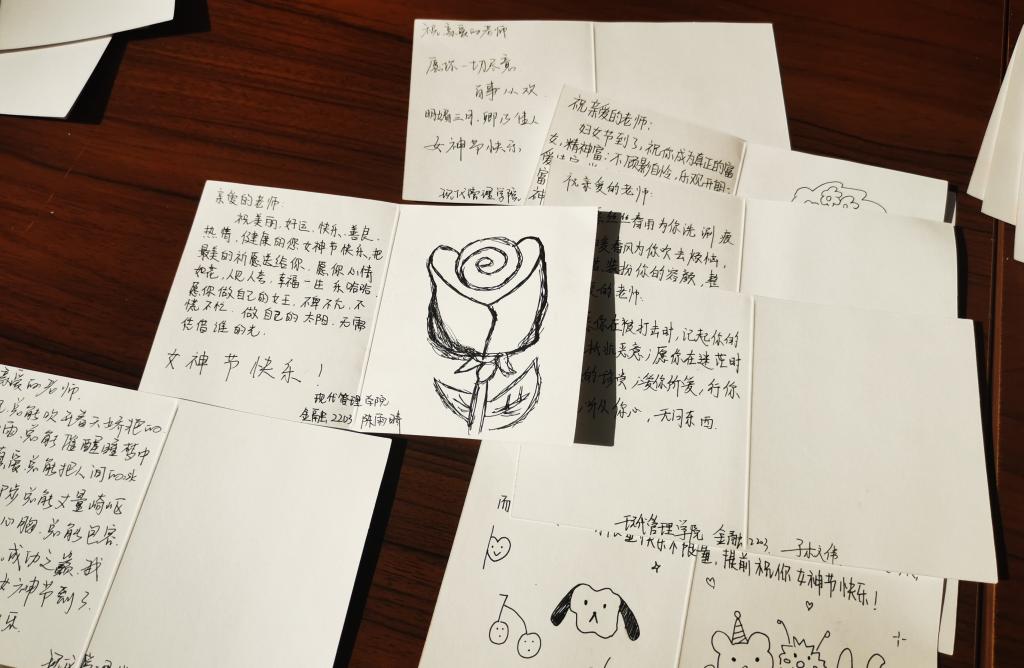 祝亲爱的老师
愿你一切尽意
百事从欢
明媚三月.卿乃佳人
女神节快乐
现代管理学院
祝亲爱的老师:
妇女节到了,祝你成为真正的富
女,精神富:不顾影自怜,乐观开朗:
祝亲爱的老师:
春雨为你洗涮疲
春风为你吹去烦恼,
装扮你的容颜,
的老师:
你在被打击时,记起你的
抵抗恶意;愿你在迷茫时
爱你所爱,行你
听从你心,无问东西.
管理学院 金融2203
亲爱的老师:
祝美丽.好运.快乐.善良.
热情.健康的您女神节快乐,把
最美的祈愿送给你.愿你心情
如花,人见人夸,幸福一生 乐哈哈.
愿你做自己的女王,不卑不亢,不
慌不忙.做自己的太阳.无需
凭借谁的光.
女神节快乐!
现代管理学院
金融2203 陈雨晴
的老师.
总能吹开春天娇艳的
雨.总能催醒睡梦中
爱总能把人间的冰
步总能丈量崎岖
心胸.总能包容
成功之巅.我
女神节到了
乐.
而
快乐
提前祝你女神节快乐!